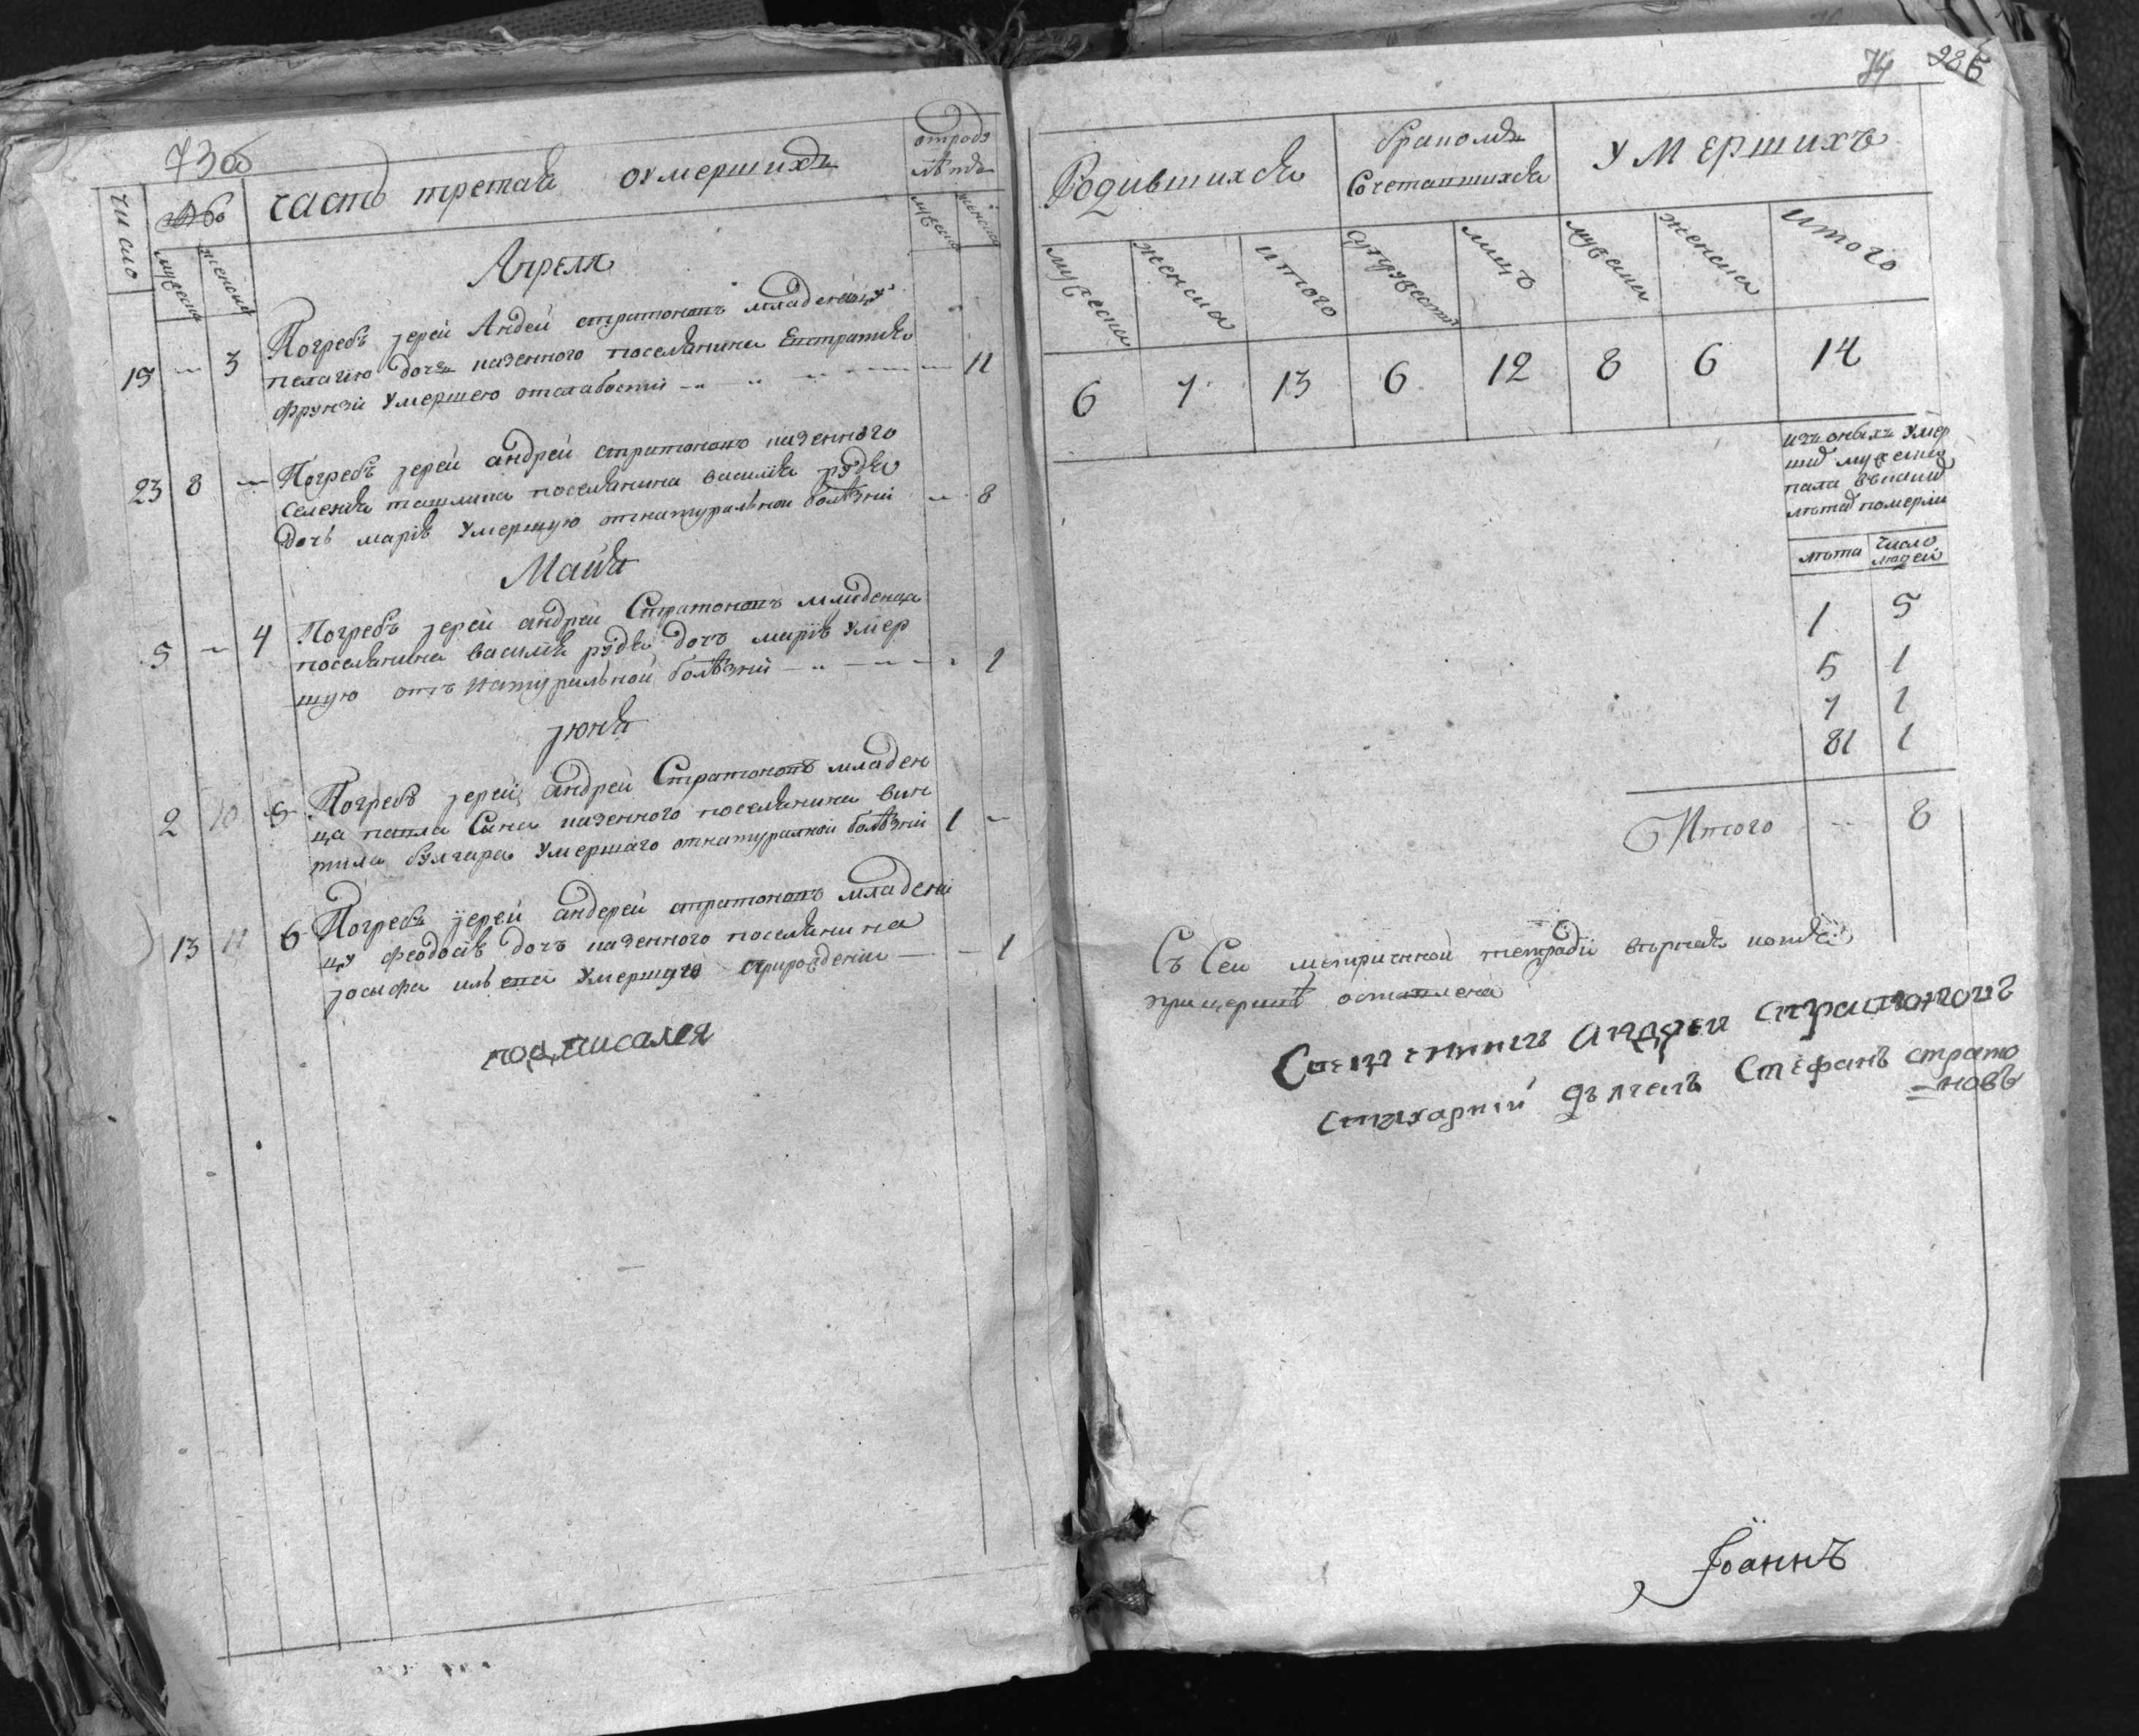 73об
число
мужеска
женска
часть третая оумершихъ
отродъ
лѣтъ
мужеска
женска
Апреля
19 — 3 Погребъ іерей Андей стратоновъ младеницу
пелагию дочъ казенного поселянина Евстратия
фрунзи умершею отслабости — 11
23 8 — Погребъ іерей андрей стратоновъ казенного
селения ташлика поселянина василія рудя
дочь маріѣ умершую отнатуральной болѣзни — 8
Маия
5 — 4 Погребъ іерей андрей Стратоновъ младенца
поселянина василія рудя дочъ маріѣ умер
шую отъ натуральной болѣзни — 1
іюня
2 10 5 Погребъ іерей андрей Стратоновъ младен
ца павла Сына казенного поселянина вин
тила булгара умершаго отнатуралной болѣзни 1 —
13 11 6 Погребъ іерей андерей стратоновъ младени
цу феодосіѣ дочъ казенного поселянина
іосыфа умершую — — 1
подписался
74 286
Родившихся
бракомъ
Сочетавшихся
умершихъ
мужеска
женска
итого
супружествъ
лицъ
мужеска
женска
итого
6 7 13 6 12 8 6 14
изъ оныхъ умер
ших мужеска
пола
лѣта померли
лѣта
число
людей
1 5
5 1
7 1
81 1
Итого — 8
Съ Сей метрической тетради вѣрная копия
прицерквѣ оставлена
Священникъ андреи стратоновъ
Стихарній дъячекъ Стефанъ страто
=новъ
Іоаннъ